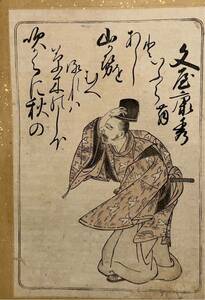 文屋康秀
吹からに秋の
草木のしほ
るれは
むへ
山風を
あらし
といふらん